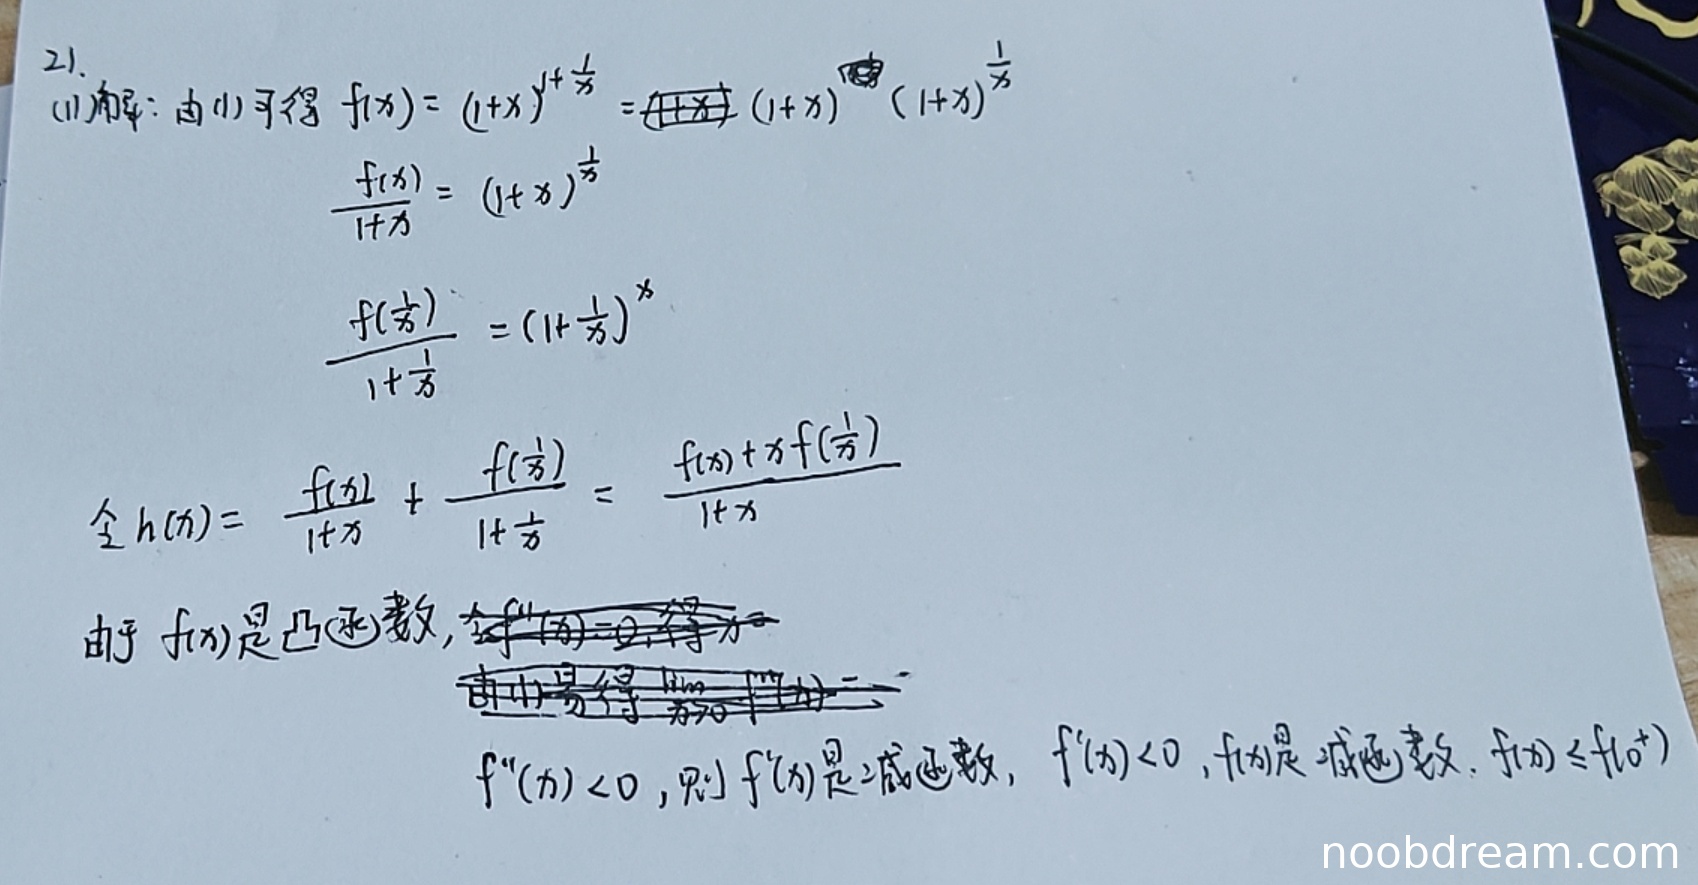 21.
(1)解: 由(1)可得 f(x) = (1+x)^{1+\frac{1}{x}} = (1+x) (1+x)^{\frac{1}{x}}
\frac{f(x)}{1+x} = (1+x)^{\frac{1}{x}}
\frac{f(\frac{1}{x})}{1+\frac{1}{x}} = (1+\frac{1}{x})^x
令 h(x) = \frac{f(x)}{1+x} + \frac{f(\frac{1}{x})}{1+\frac{1}{x}} = \frac{f(x)+xf(\frac{1}{x})}{1+x}
由于 f(x)是凸函数,
f''(x)<0, 则 f'(x)是减函数, f'(x)<0, f(x)是减函数. f(x)≤f(0⁺)
noobdream.com